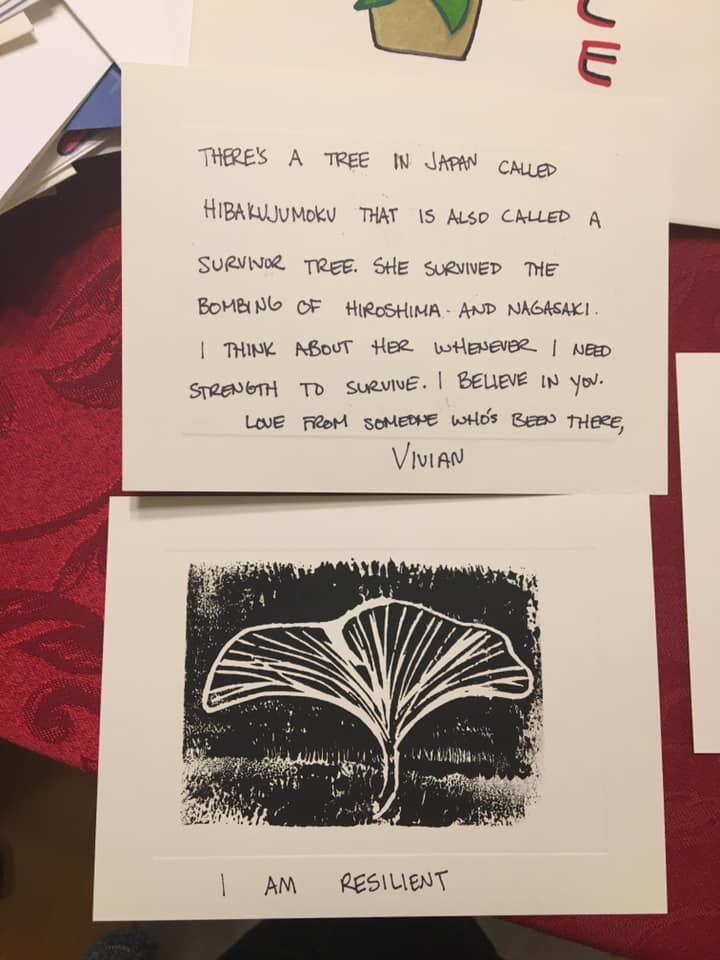 CE
THERE'S A TREE IN JAPAN CALLED
HIBAKUJUMOKU THAT IS ALSO CALLED A
SURVIVOR TREE. SHE SURVIVED THE
BOMBING OF HIROSHIMA AND NAGASAKI.
I THINK ABOUT HER WHENEVER I NEED
STRENGTH TO SURVIVE. I BELIEVE IN YOU.
LOVE FROM SOMEONE WHO'S BEEN THERE,
VIVIAN
I AM RESILIENT